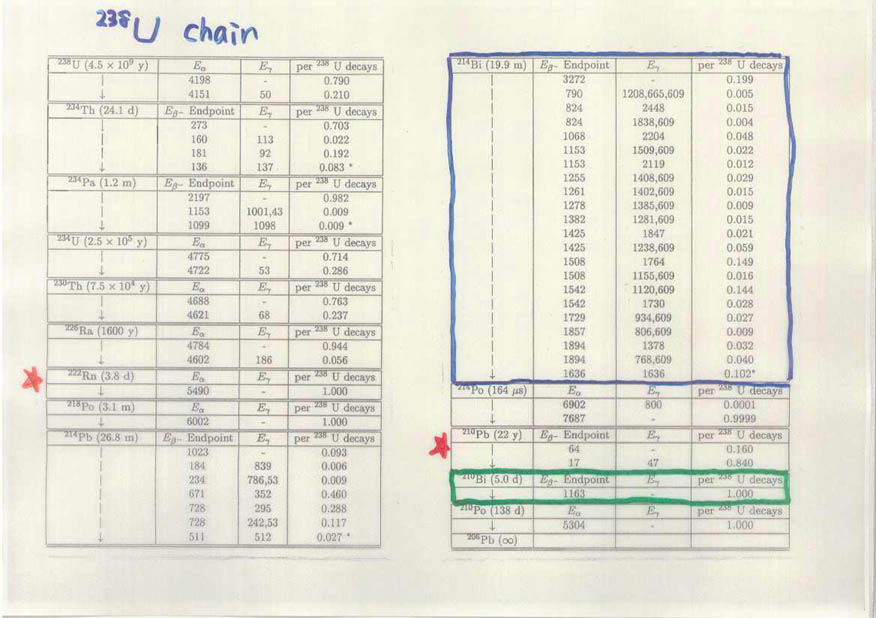 ²³⁸U chain
²³⁸U (4.5 × 10⁹ y) Eα Eγ per ²³⁸ U decays
| 4198 - 0.790
↓ 4151 50 0.210
²³⁴Th (24.1 d) Eβ− Endpoint Eγ per ²³⁸ U decays
| 273 - 0.703
| 160 113 0.022
| 181 92 0.192
↓ 136 137 0.083 *
²³⁴Pa (1.2 m) Eβ− Endpoint Eγ per ²³⁸ U decays
| 2197 - 0.982
| 1153 1001,43 0.009
↓ 1099 1098 0.009 *
²³⁴U (2.5 × 10⁵ y) Eα Eγ per ²³⁸ U decays
| 4775 - 0.714
↓ 4722 53 0.286
²³⁰Th (7.5 × 10⁴ y) Eα Eγ per ²³⁸ U decays
| 4688 - 0.763
↓ 4621 68 0.237
²²⁶Ra (1600 y) Eα Eγ per ²³⁸ U decays
| 4784 - 0.944
↓ 4602 186 0.056
²²²Rn (3.8 d) Eα Eγ per ²³⁸ U decays
↓ 5490 - 1.000
²¹⁸Po (3.1 m) Eα Eγ per ²³⁸ U decays
↓ 6002 - 1.000
²¹⁴Pb (26.8 m) Eβ− Endpoint Eγ per ²³⁸ U decays
| 1023 - 0.093
| 184 839 0.006
| 234 786,53 0.009
| 671 352 0.460
| 728 295 0.288
| 728 242,53 0.117
↓ 511 512 0.027 *
²¹⁴Bi (19.9 m) Eβ− Endpoint Eγ per ²³⁸ U decays
| 3272 - 0.199
| 790 1208,665,609 0.005
| 824 2448 0.015
| 824 1838,609 0.004
| 1068 2204 0.048
| 1153 1509,609 0.022
| 1153 2119 0.012
| 1255 1408,609 0.029
| 1261 1402,609 0.015
| 1278 1385,609 0.009
| 1382 1281,609 0.015
| 1425 1847 0.021
| 1425 1238,609 0.059
| 1508 1764 0.149
| 1508 1155,609 0.016
| 1542 1120,609 0.144
| 1542 1730 0.028
| 1729 934,609 0.027
| 1857 806,609 0.009
| 1894 1378 0.032
| 1894 768,609 0.040
↓ 1636 1636 0.102*
²¹⁴Po (164 μs) Eα Eγ per ²³⁸ U decays
| 6902 800 0.0001
↓ 7687 - 0.9999
²¹⁰Pb (22 y) Eβ− Endpoint Eγ per ²³⁸ U decays
| 64 - 0.160
↓ 17 47 0.840
²¹⁰Bi (5.0 d) Eβ− Endpoint Eγ per ²³⁸ U decays
↓ 1163 - 1.000
²¹⁰Po (138 d) Eα Eγ per ²³⁸ U decays
↓ 5304 - 1.000
²⁰⁶Pb (∞)